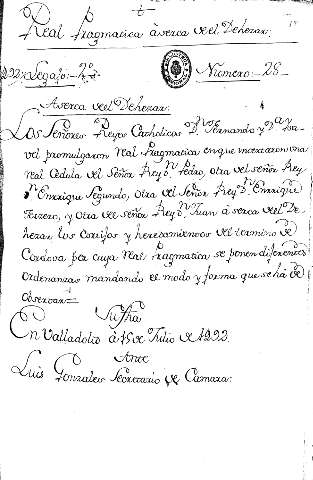 Real Pragmatica àserca del Dehezar.
Legajo: 2º Numero: 28
Aserca del Dehezar.
Los Señores Reyes Catholicos Dn Fernando y Da Ysa-
vel promulgaron Real Pragmatica en que incertaron una
Real Cedula del Señor Rey Dn Pedro, otra del señor Rey
Dn Enrrique Segundo, otra del Señor Rey Dn Enrrique
Tercero, y otra del señor Rey Dn Juan à serca del De-
hezar los Cortijos y heredamientos del termino de
Cordova por cuya Real Pragmatica se ponen diferentes
ordenanzas mandando el modo y forma que se há de
observar
Su fha
En Valladolid à 15 de Julio de 1492.
Ante
Luis Gonzales Secretario de Camara.